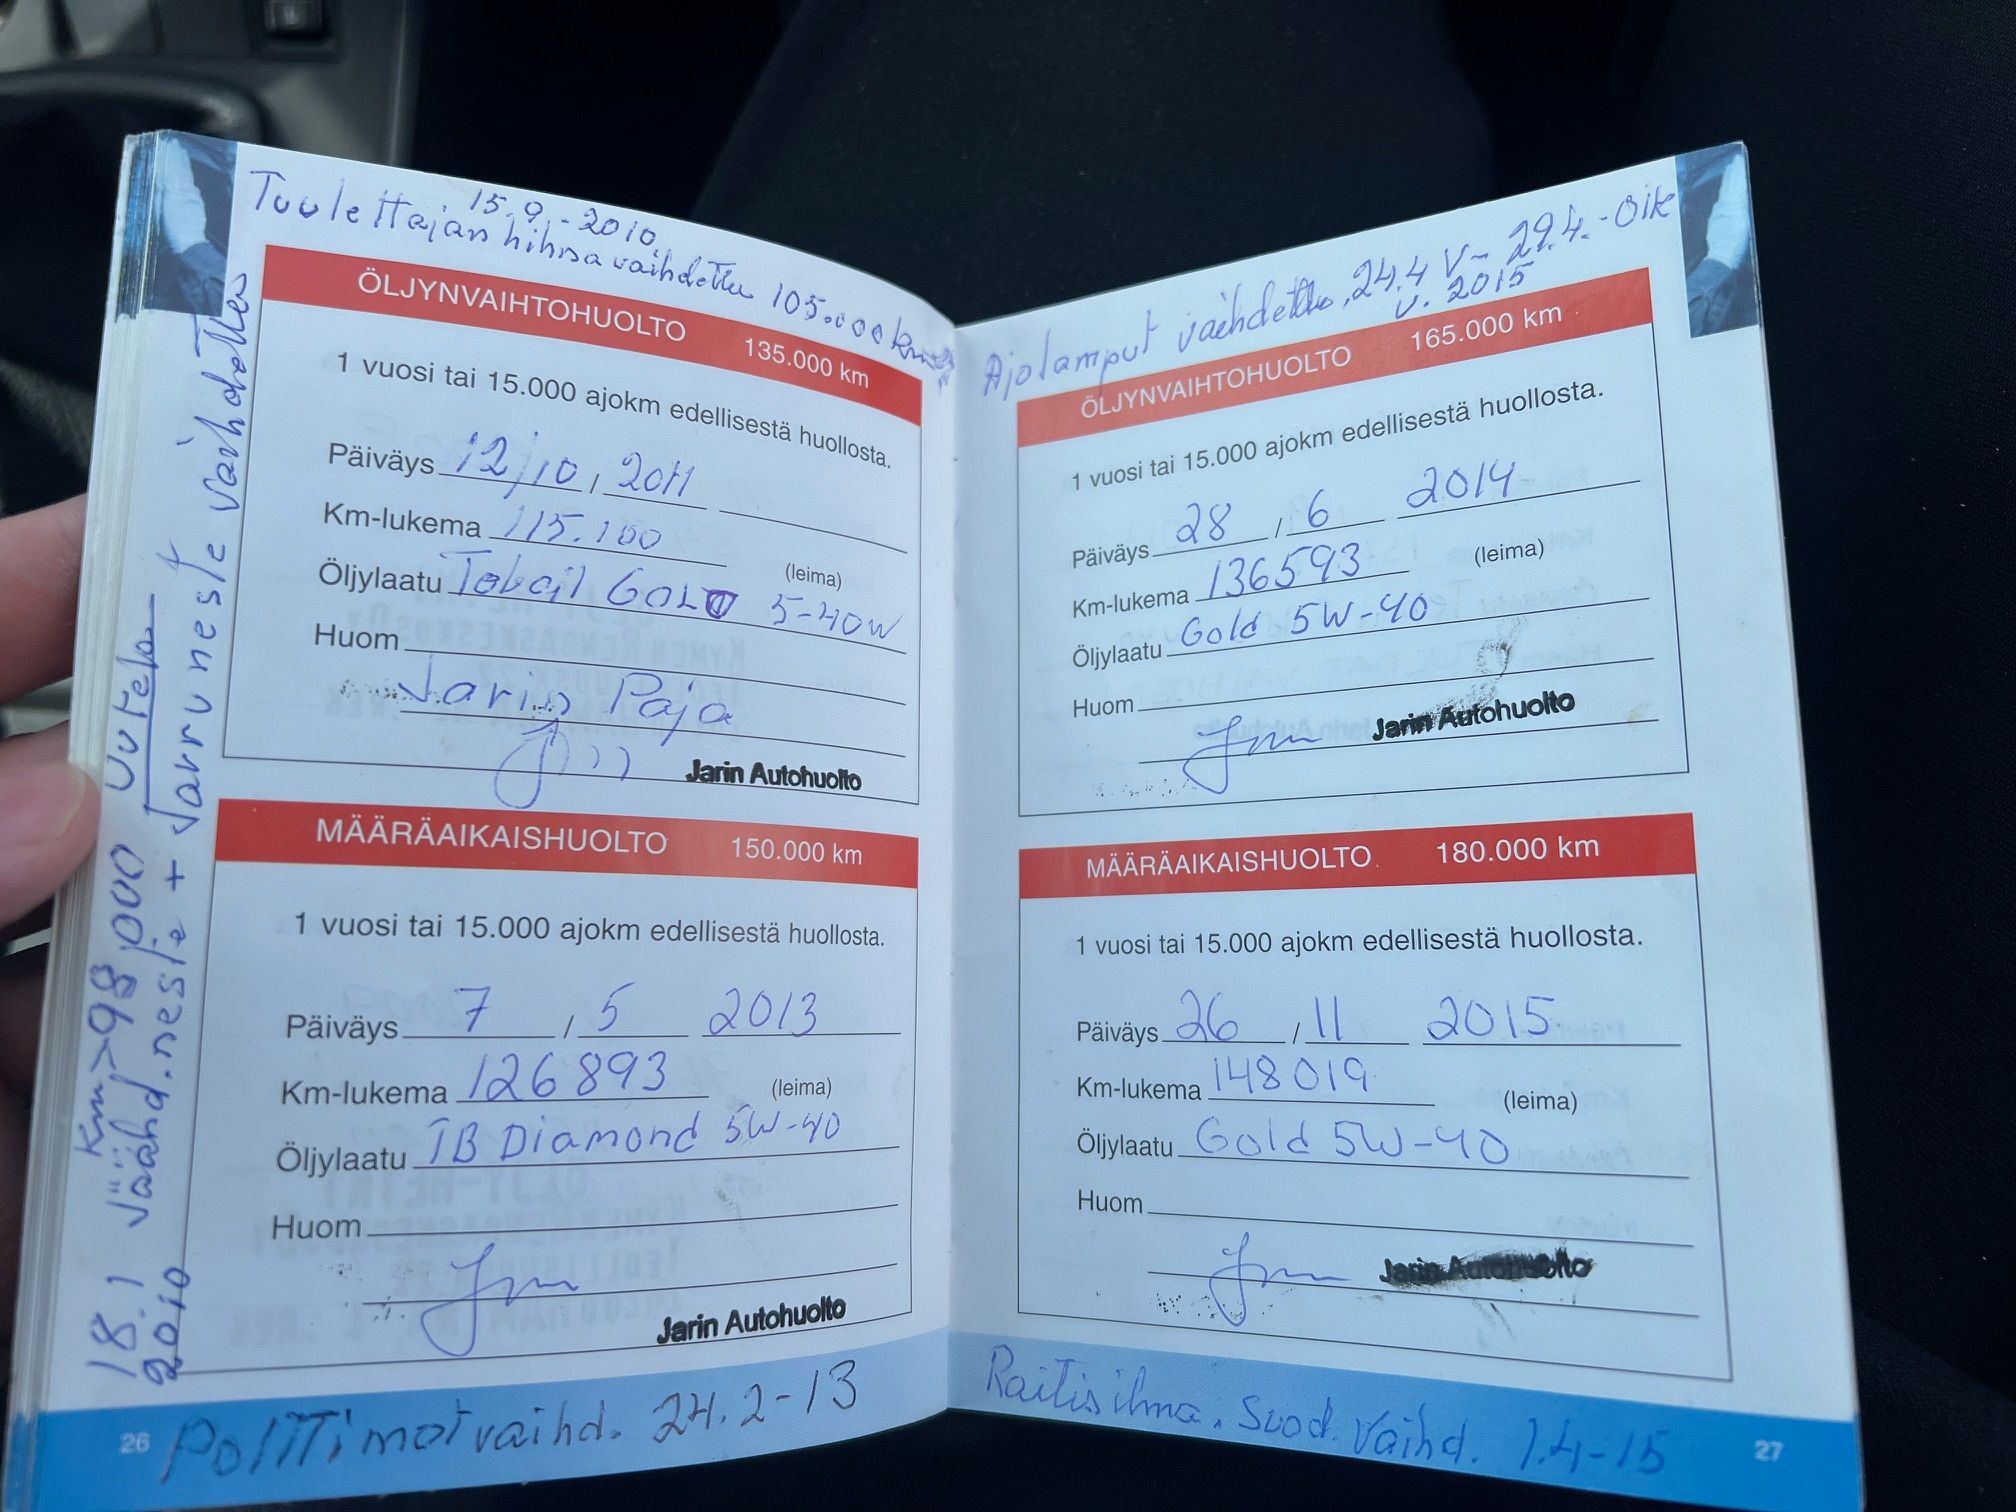 15.9.-2010
Tuulettajan hihna vaihdettu 105.000 km
ÖLJYNVAIHTOHUOLTO 135.000 km
1 vuosi tai 15.000 ajokm edellisestä huollosta.
Päiväys 12/10 / 2011
Km-lukema 115.100
(leima)
Öljylaatu GOLD 5-40W
Huom
Jarin Paja
Jarin Autohuolto
MÄÄRÄAIKAISHUOLTO 150.000 km
1 vuosi tai 15.000 ajokm edellisestä huollosta.
Päiväys 7 / 5 2013
Km-lukema 126893 (leima)
Öljylaatu TB Diamond 5W-40
Huom
Jarin Autohuolto
18.1 Km>98.000 Uutela
2010 Jäähd.neste + Jarruneste vaihdettu
26
Polttimot vaihd. 24.2-13
Ajolamput vaihdettu, 24.4 V- 29.4.-Oik
v. 2015
ÖLJYNVAIHTOHUOLTO 165.000 km
1 vuosi tai 15.000 ajokm edellisestä huollosta.
Päiväys 28 / 6 2014
Km-lukema 136593 (leima)
Öljylaatu Gold 5W-40
Huom
Jarin Autohuolto
MÄÄRÄAIKAISHUOLTO 180.000 km
1 vuosi tai 15.000 ajokm edellisestä huollosta.
Päiväys 26 / 11 2015
Km-lukema 148019 (leima)
Öljylaatu Gold 5W-40
Huom
Jarin Autohuolto
Raitisilma. Suod. Vaihd. 1.4-15
27